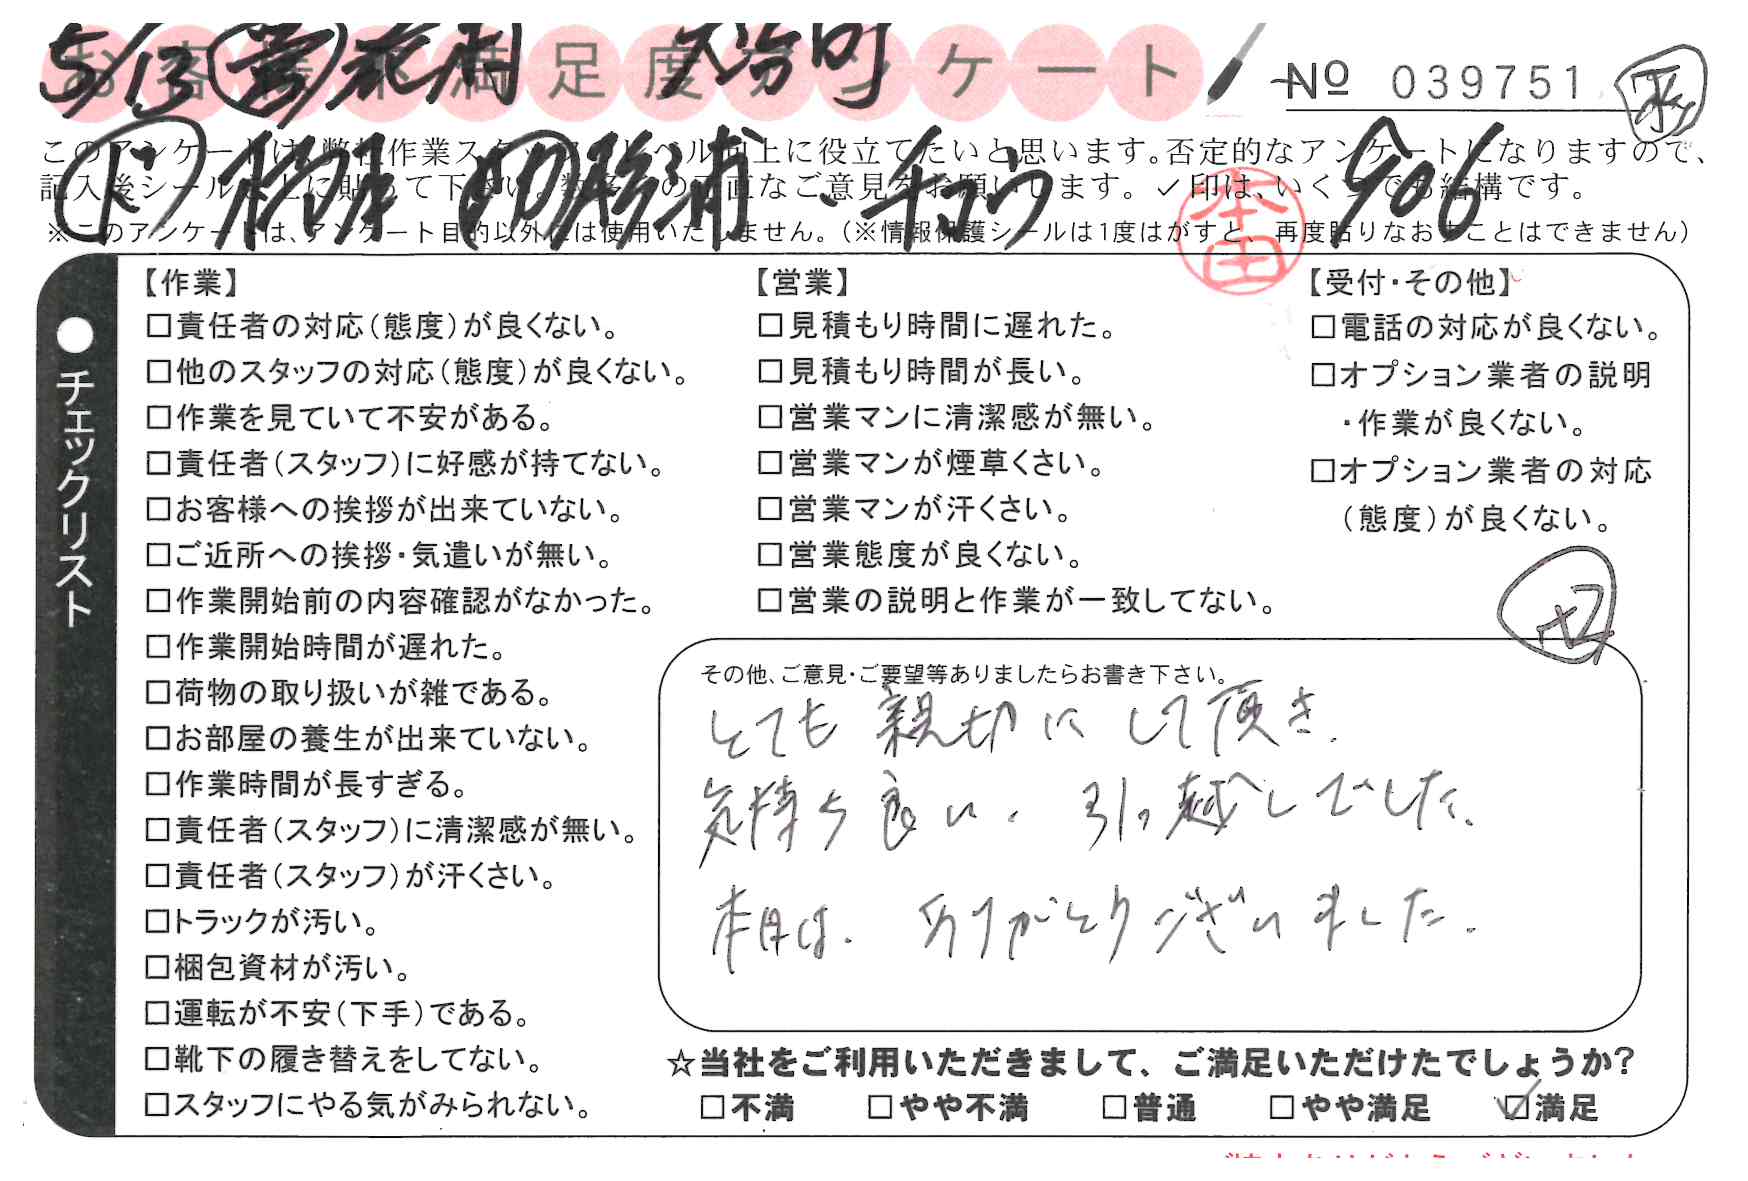 お客様不満足度アンケート
№ 039751
5/13
このアンケートは、弊社作業スタッフのレベル向上に役立てたいと思います。否定的なアンケートになりますので、
記入後シールを上に貼って下さい。数多くの正直なご意見をお願いします。✓印は、いくつでも結構です。
906
※このアンケートは、アンケート目的以外には使用いたしません。(※情報保護シールは1度はがすと、再度貼りなおすことはできません)
本田
●チェックリスト
【作業】
□責任者の対応(態度)が良くない。
□他のスタッフの対応(態度)が良くない。
□作業を見ていて不安がある。
□責任者(スタッフ)に好感が持てない。
□お客様への挨拶が出来ていない。
□ご近所への挨拶・気遣いが無い。
□作業開始前の内容確認がなかった。
□作業開始時間が遅れた。
□荷物の取り扱いが雑である。
□お部屋の養生が出来ていない。
□作業時間が長すぎる。
□責任者(スタッフ)に清潔感が無い。
□責任者(スタッフ)が汗くさい。
□トラックが汚い。
□梱包資材が汚い。
□運転が不安(下手)である。
□靴下の履き替えをしてない。
□スタッフにやる気がみられない。
【営業】
□見積もり時間に遅れた。
□見積もり時間が長い。
□営業マンに清潔感が無い。
□営業マンが煙草くさい。
□営業マンが汗くさい。
□営業態度が良くない。
□営業の説明と作業が一致してない。
【受付・その他】
□電話の対応が良くない。
□オプション業者の説明
・作業が良くない。
□オプション業者の対応
(態度)が良くない。
その他、ご意見・ご要望等ありましたらお書き下さい。
とても親切にして頂き、
気持ち良い、引っ越しでした。
本日は、ありがとうございました。
☆当社をご利用いただきまして、ご満足いただけたでしょうか?
□不満 □やや不満 □普通 □やや満足 ☑満足